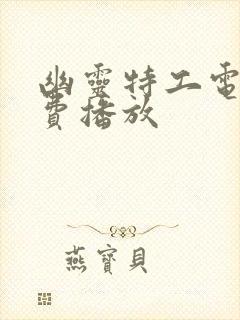 幽靈特工電
費播放
燕寶貝